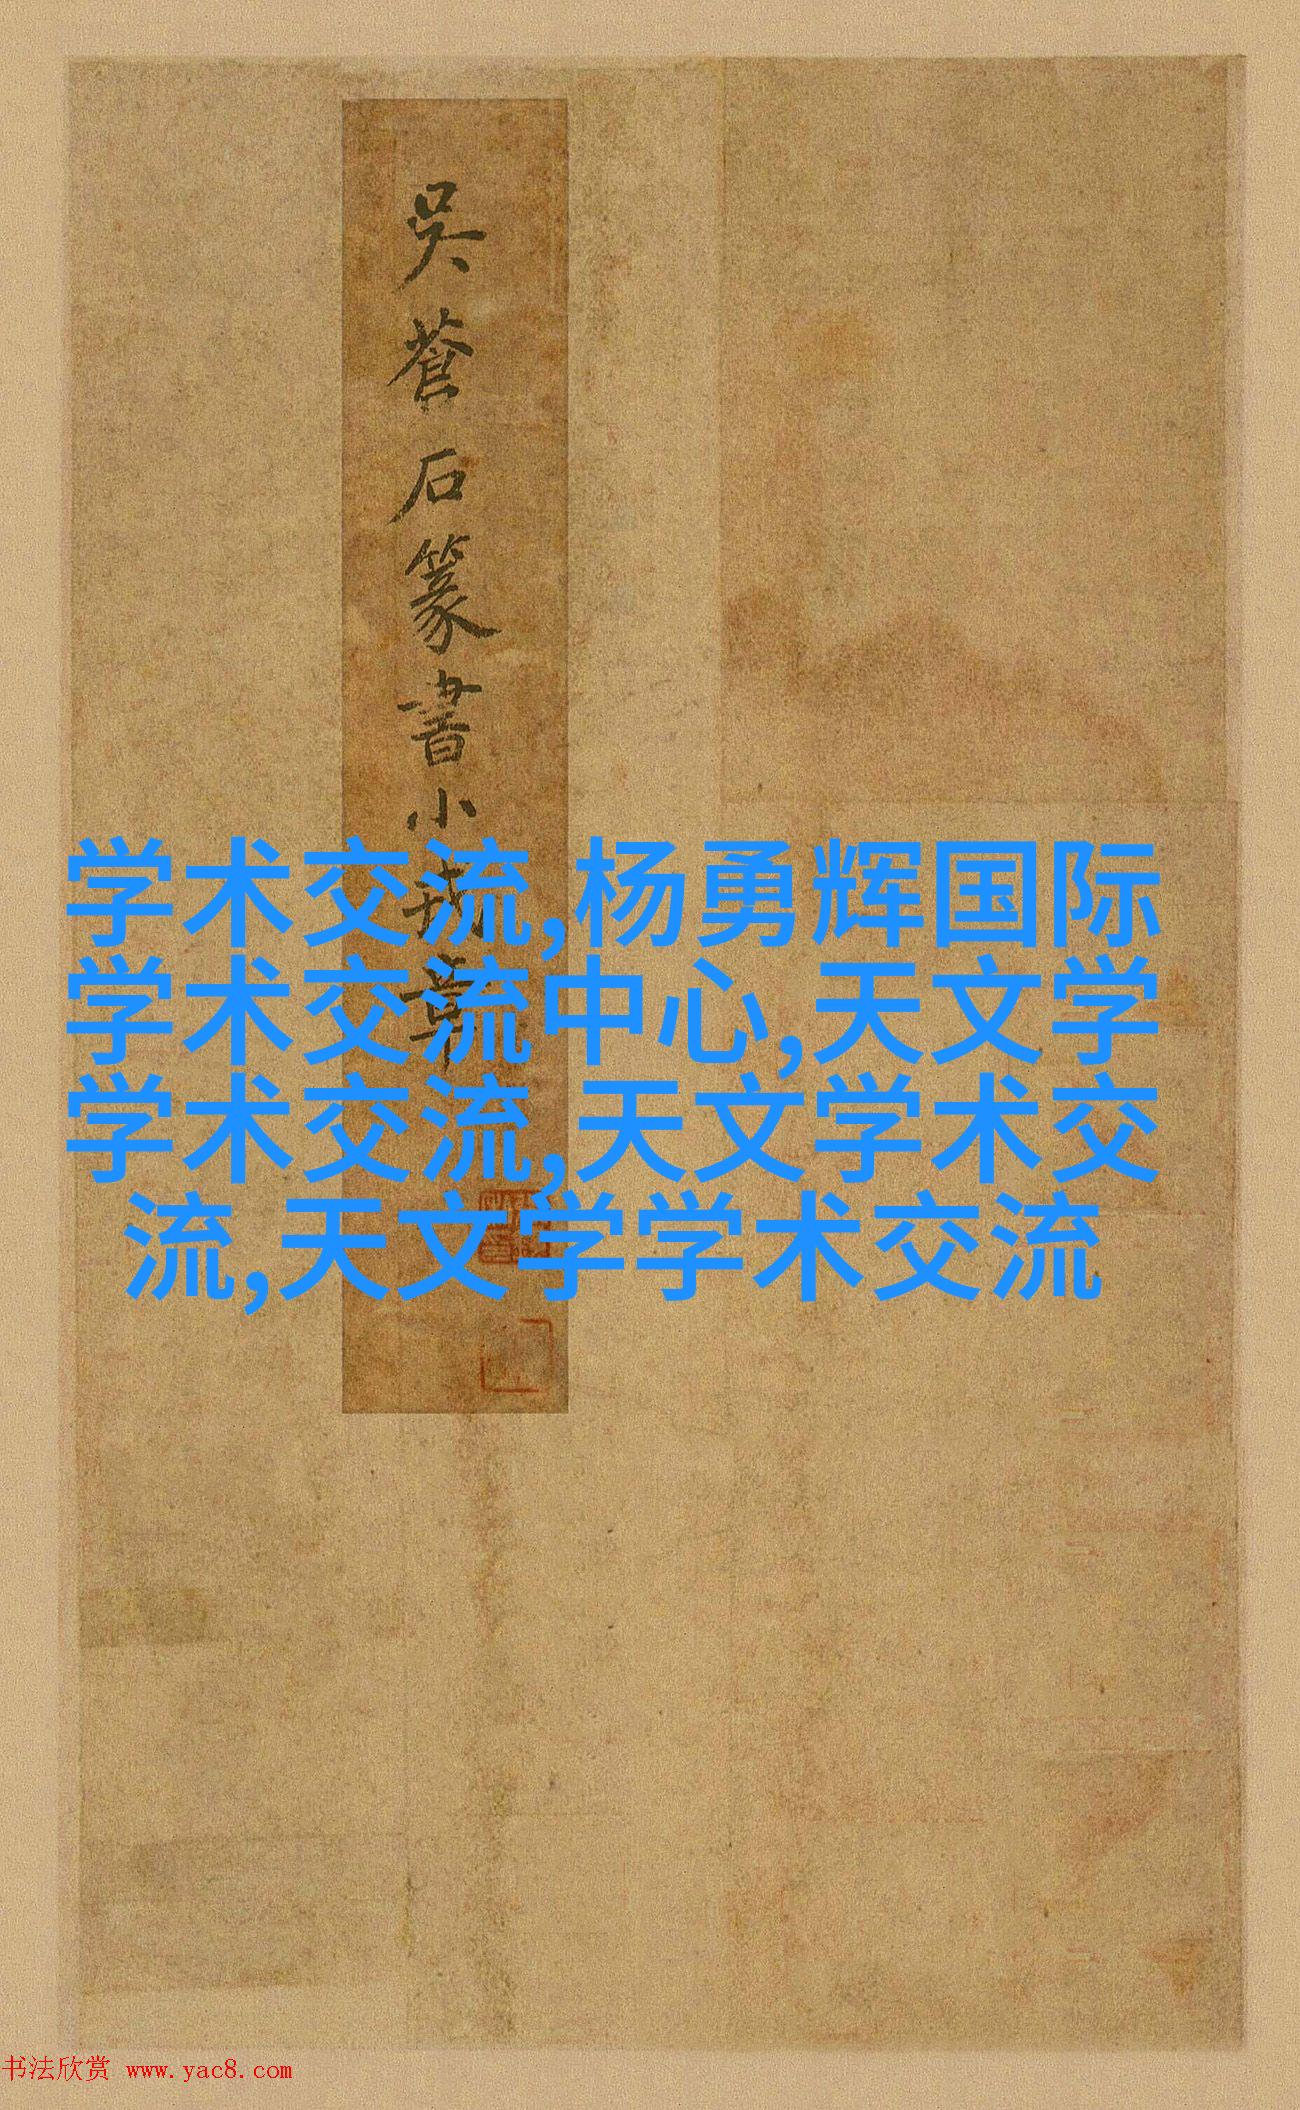 吳蒼石篆書小戎章
学术交流,杨勇辉国际
学术交流中心,天文学
学术交流,天文学术交
流,天文学学术交流
书法欣赏 www.yac8.com